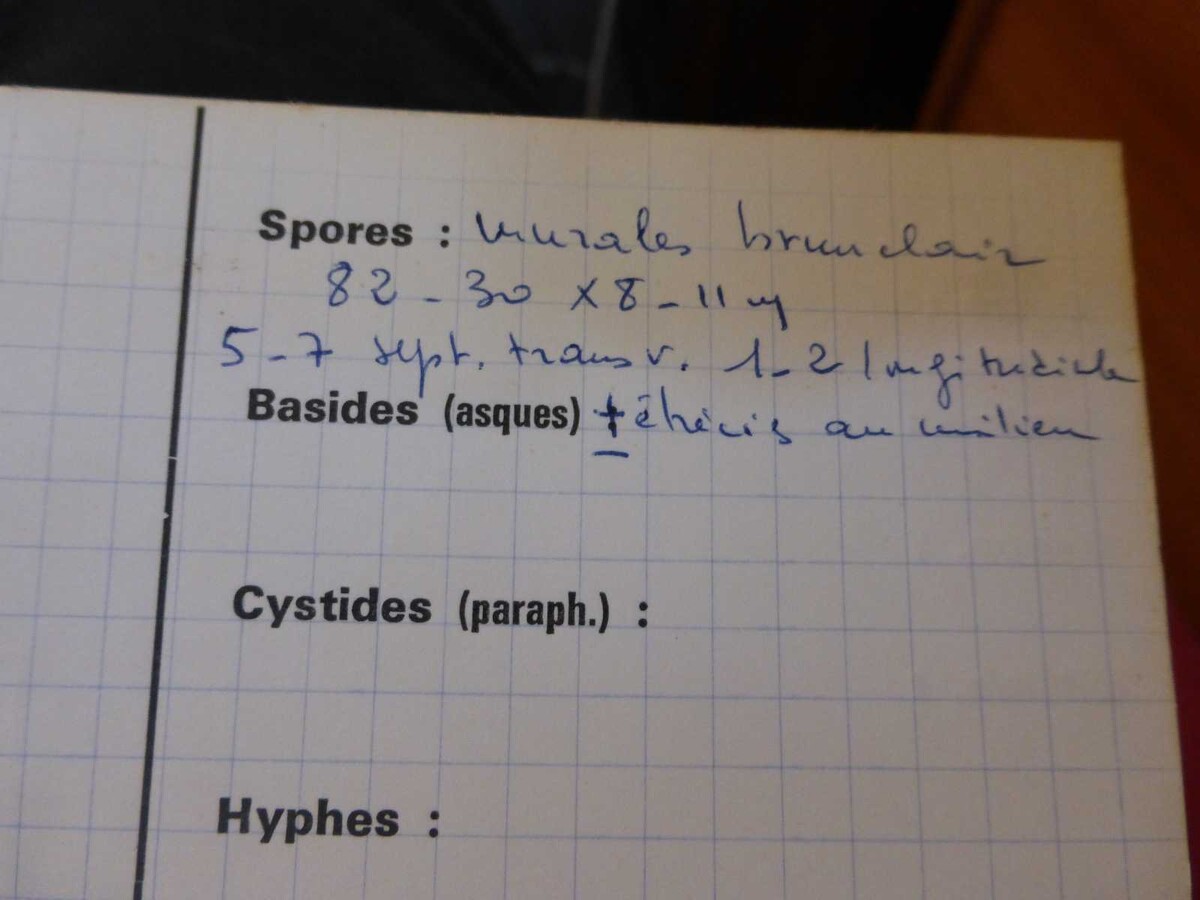 Spores : murales brun clair
82 - 30 x 8 - 11 µ
5 - 7 sept. transv. 1 - 2 longitudinale
Basides (asques) ± étrécis au milieu
Cystides (paraph.) :
Hyphes :